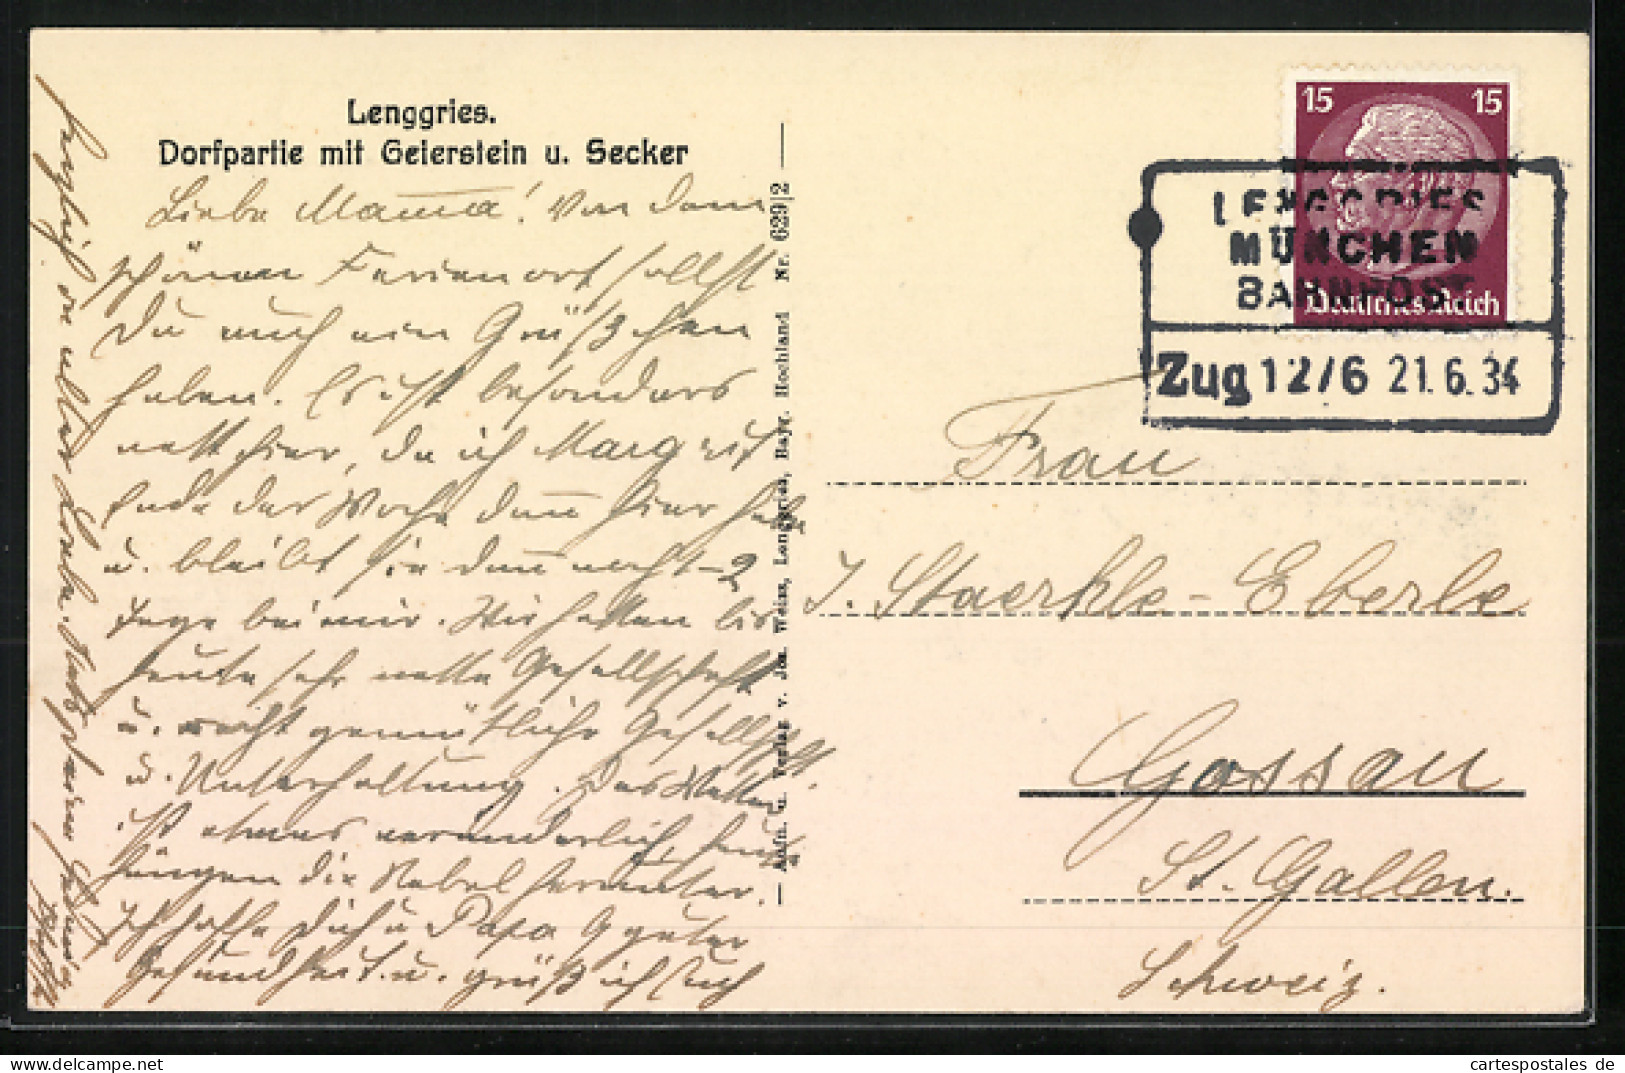 Lenggries.
Dorfpartie mit Geierstein u. Secker
Liebe Mama! Von dem
schönen Ferienort sollst
Du auch ein Grüßchen
haben. Es ist besonders
nett hier, da ich Margrit
Ende der Woche dann hier habe
u. bleibt sie dann noch 2
Tage bei mir. Wir hatten bis
heute sehr nette Gesellschaft
u. recht gemütliche Gesellschaft
u. Unterhaltung. Das Wetter
ist etwas veränderlich, heute
hängen die Nebel herunter.
Ich hoffe Dich u. Papa guter
Gesundheit u. grüß ich Euch
herzlich
Aufn. u. Verlag v. Jos. Weiss, Lenggries, Bayr. Hochland Nr. 629|2
15 15
Deutsches Reich
LENGGRIES
MÜNCHEN
BAHNPOST
Zug 12/6 21.6.34
Frau
J. Staerkle-Eberle
Gossau
St. Gallen.
Schweiz.
cartespostales de